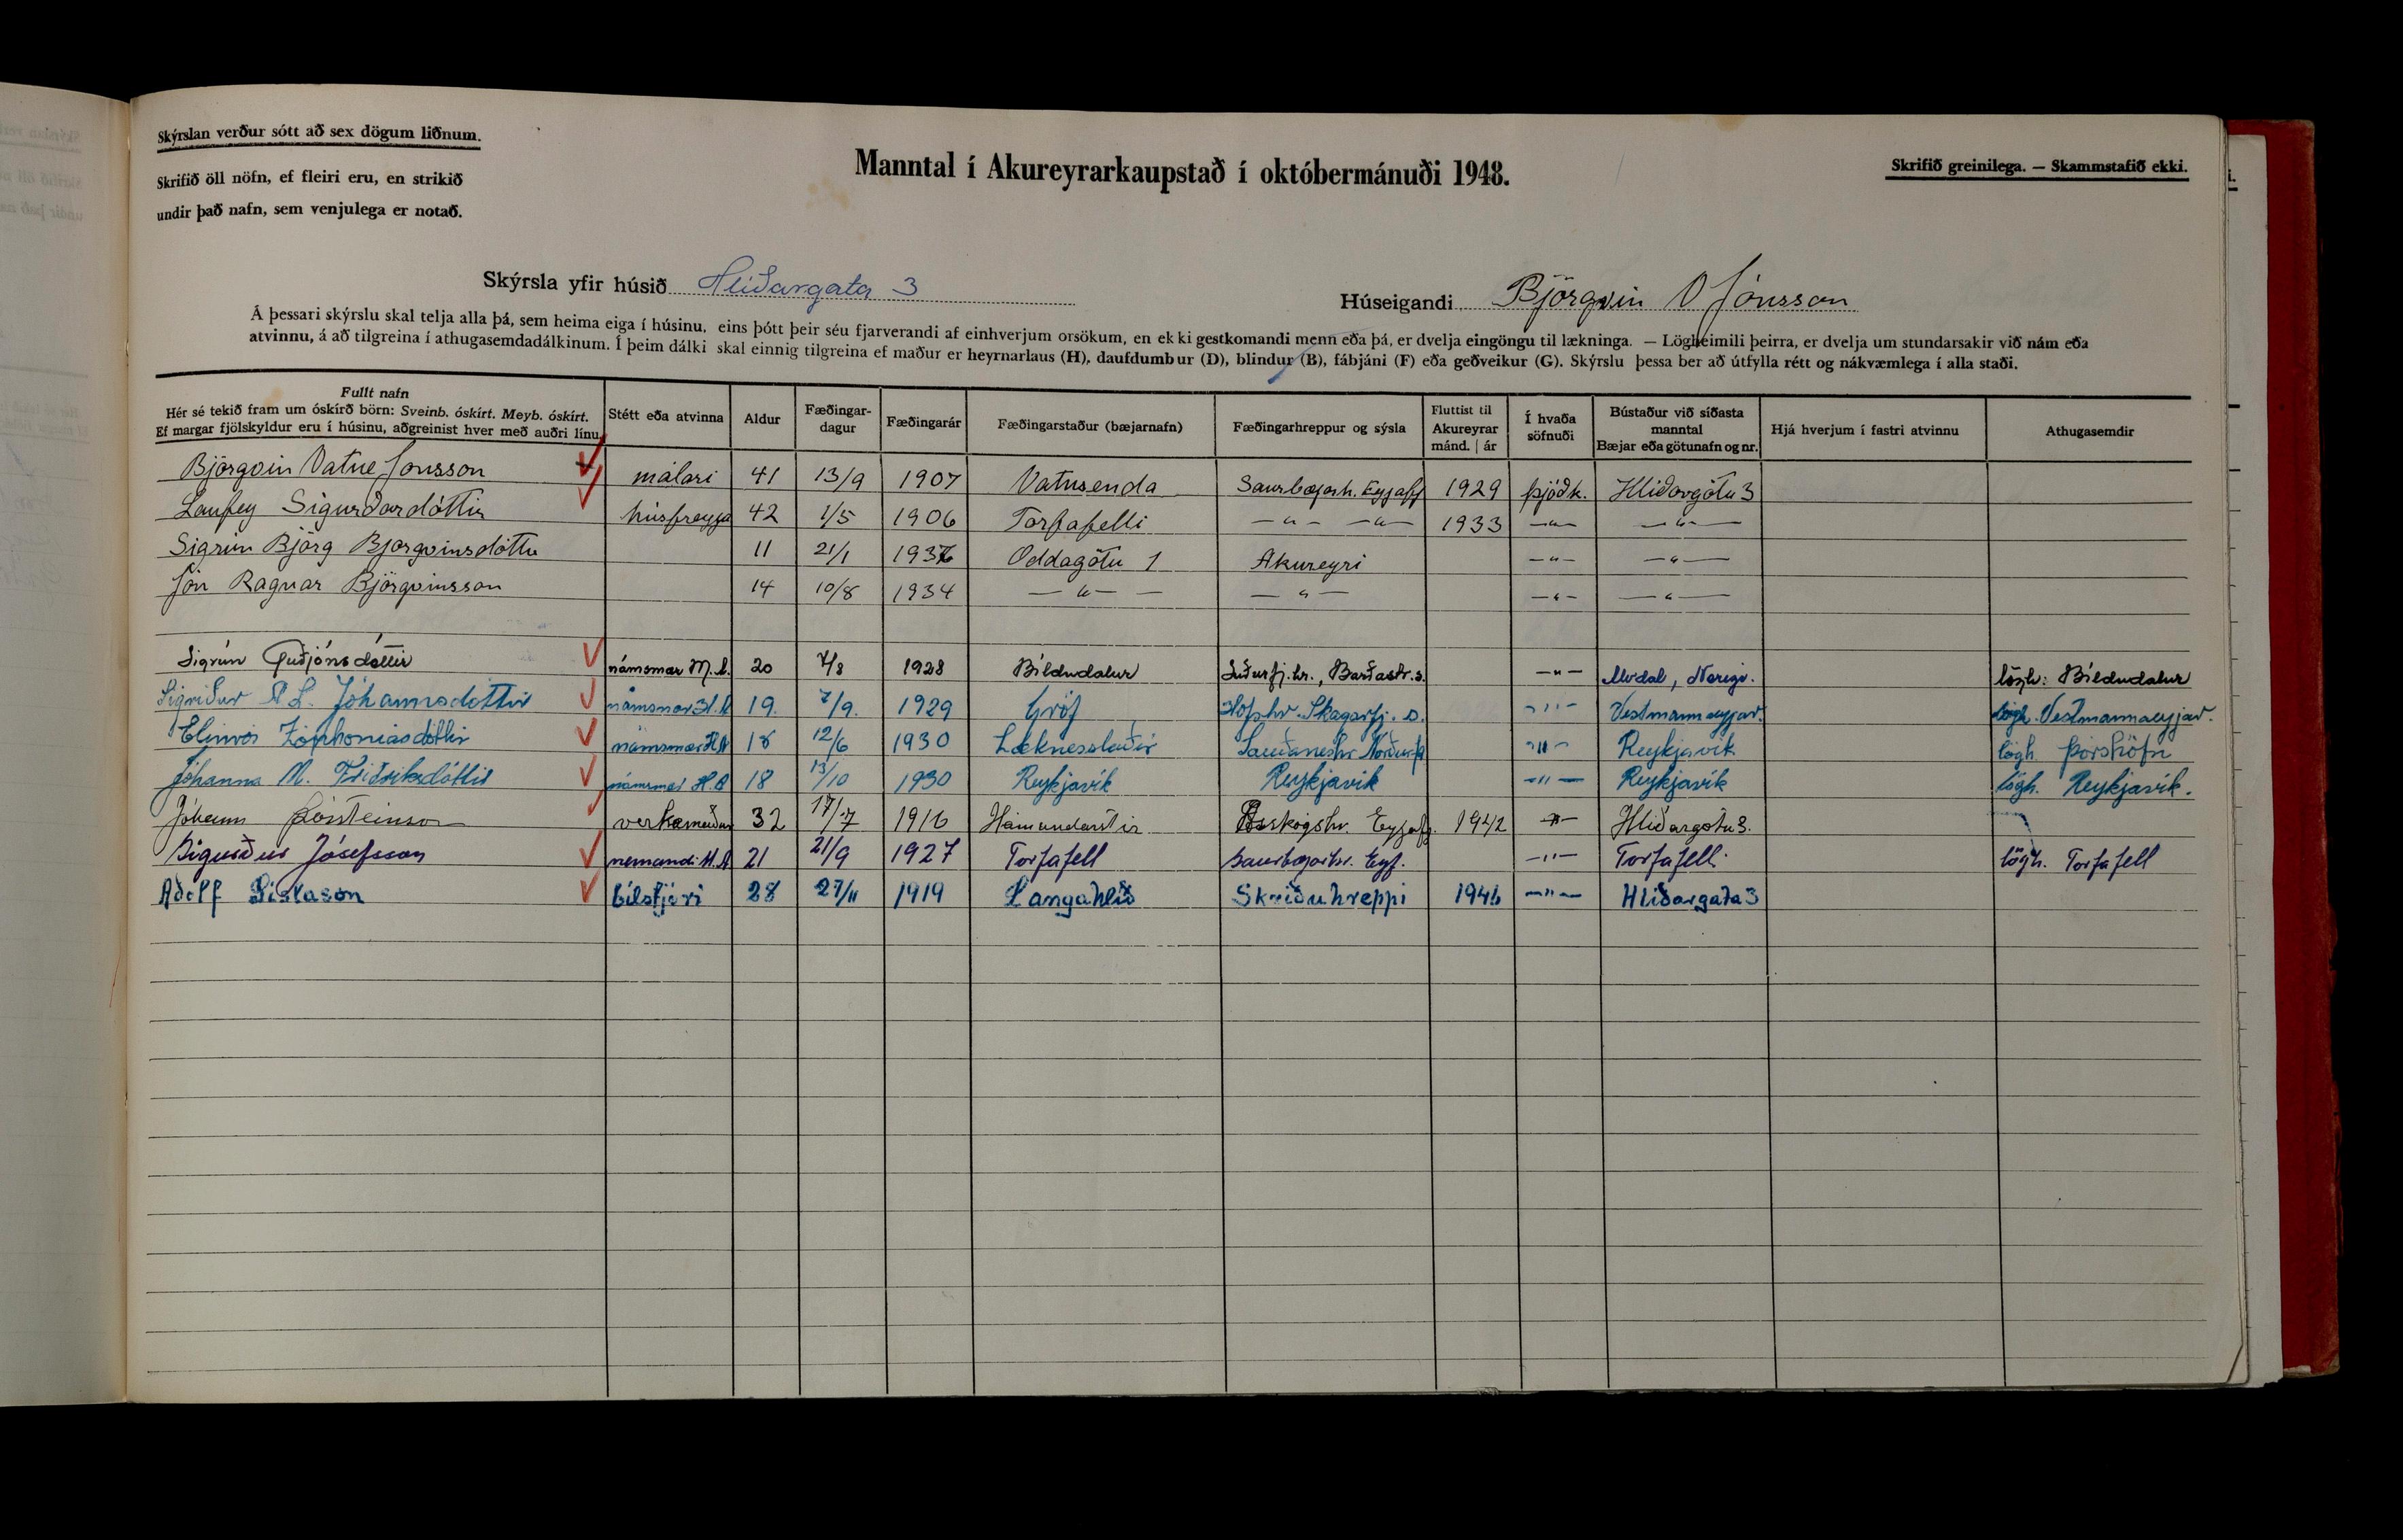 Skýrslan verður sótt að sex dögum liðnum.
Skrifið öll nöfn, ef fleiri eru, en strikið
undir það nafn, sem venjulega er notað.
Manntal í Akureyrarkaupstað í októbermánuði 1948.
Skrifið greinilega. — Skammstafið ekki.
Skýrsla yfir húsið Hlíðargata 3
Húseigandi Björgvin V Jónsson
Á þessari skýrslu skal telja alla þá, sem heima eiga í húsinu, eins þótt þeir séu fjarverandi af einhverjum orsökum, en ekki gestkomandi menn eða þá, er dvelja eingöngu til lækninga. — Lögheimili þeirra, er dvelja um stundarsakir við nám eða
atvinnu, á að tilgreina í athugasemdadálkinum. Í þeim dálki skal einnig tilgreina ef maður er heyrnarlaus (H), daufdumbur (D), blindur (B), fábjáni (F) eða geðveikur (G). Skýrslu þessa ber að útfylla rétt og nákvæmlega í alla staði.
Fullt nafn
Hér sé tekið fram um óskírð börn: Sveinb. óskírt. Meyb. óskírt.
Ef margar fjölskyldur eru í húsinu, aðgreinist hver með auðri línu.
Stétt eða atvinna
Aldur
Fæðingar-
dagur
Fæðingarár
Fæðingarstaður (bæjarnafn)
Fæðingarhreppur og sýsla
Fluttist til
Akureyrar
mánd. | ár
Í hvaða
söfnuði
Bústaður við síðasta
manntal
Bæjar eða götunafn og nr.
Hjá hverjum í fastri atvinnu
Athugasemdir
Björgvin Vatne Jónsson málari 41 13/9 1907 Vatnsenda Saurbæjarh. Eyjafj 1929 þjóðk. Hlíðargötu 3
Laufey Sigurðardóttir húsfreyja 42 1/5 1906 Torfafelli —"— —"— 1933 —"— —"—
Sigrún Björg Björgvinsdóttir 11 21/1 1937 Oddagötu 1 Akureyri —"— —"—
Jón Ragnar Björgvinsson 14 10/8 1934 —"— —"— —"— —"—
Sigrún Guðjónsdóttir námsmær M.A. 20 7/8 1928 Bíldudalur Suðurfj.hr., Barðastr.s. —"— Noregi. lögh: Bíldudalur
Sigríður A. L. Jóhannsdóttir námsmær M.A 19. 7/9. 1929 Gröf Hofshr. Skagafj. s. —"— Vestmannaeyjar. lögh. Vestmannaeyjar.
námsmær M.A 18 12/6 1930 Læknesstaðir Sauðaneshr —"— Reykjavík lögh. Þórshöfn
Jóhanna M. Friðriksdóttir námsmær M.A 18 13/10 1930 Reykjavík Reykjavík —"— Reykjavík lögh. Reykjavík.
Jóhann Þorsteinsson 32 17/7 1916 Hámundarstir Árskógshr. Eyjafj. 1942 —"— Hlíðargötu 3.
Sigurður Jósefsson nemandi M.A 21 21/9 1927 Torfafell Saurbæjarhr. Eyf. —"— Torfafell. lögh. Torfafell
Aðolf Gíslason bílstjóri 28 27/11 1919 Langahlíð Skriðuhreppi 1946 —"— Hlíðargata 3